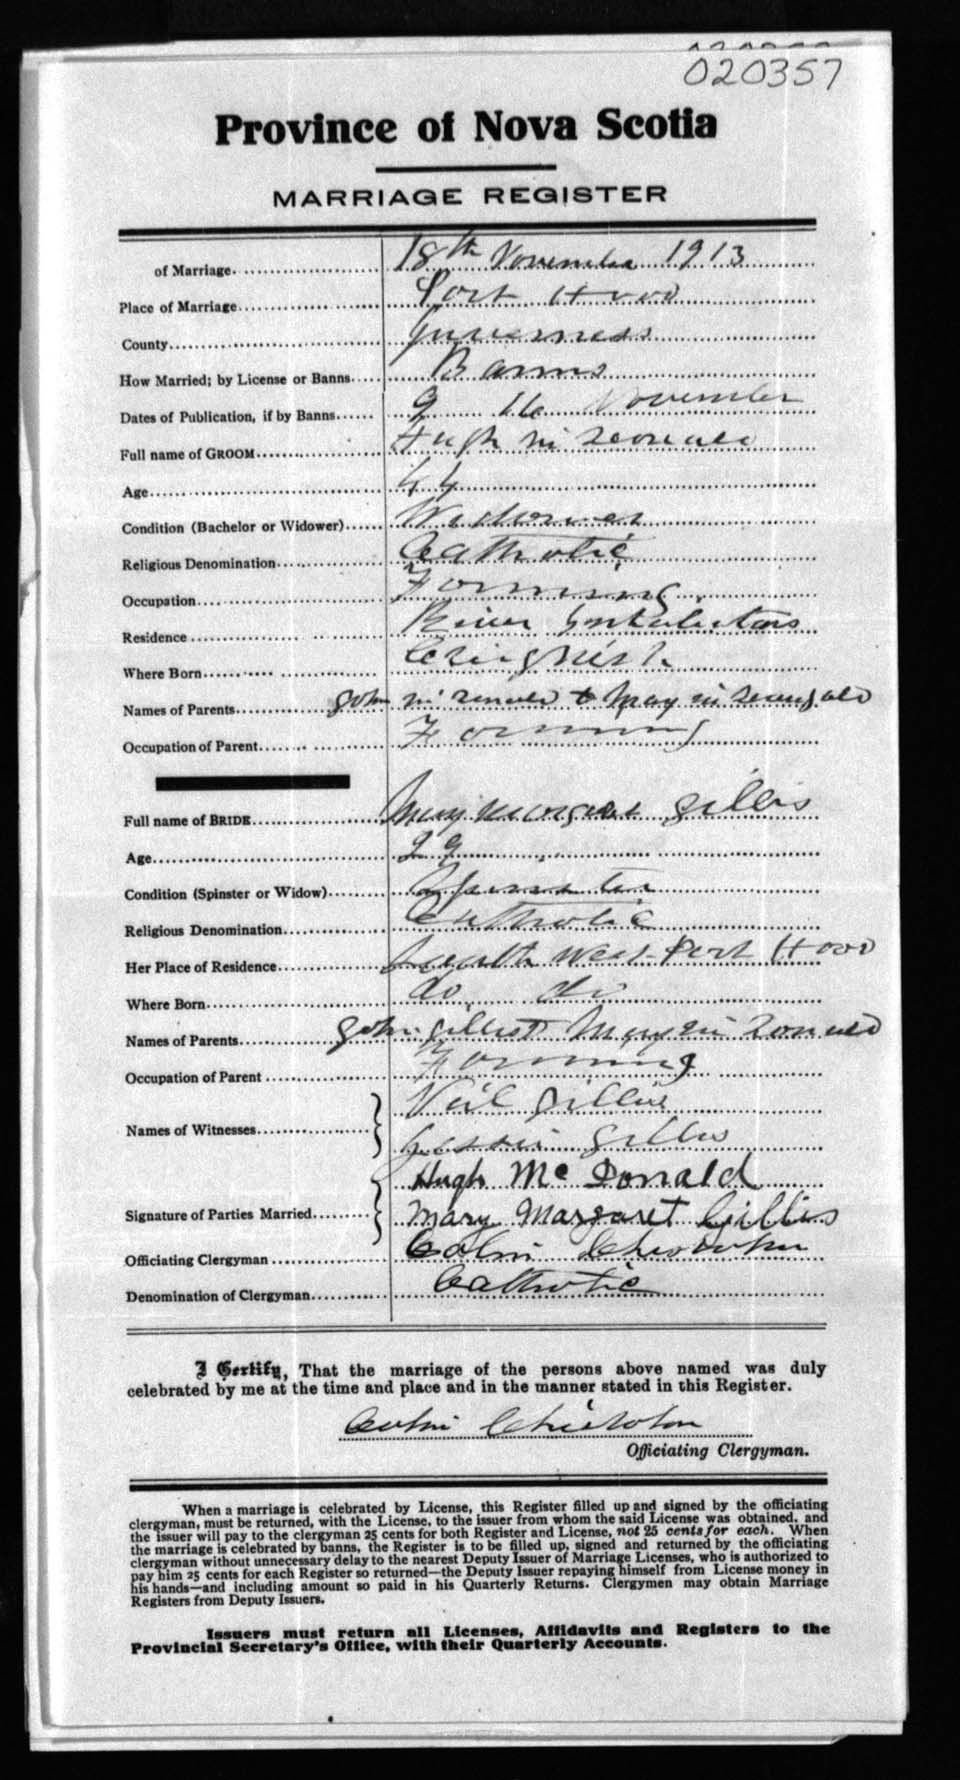 020357
Province of Nova Scotia
MARRIAGE REGISTER
of Marriage 18th November 1913
Place of Marriage Port Hood
County Inverness
How Married; by License or Banns Banns
Dates of Publication, if by Banns 9 16 November
Full name of GROOM Hugh McDonald
Age 44
Condition (Bachelor or Widower) Widower
Religious Denomination Catholic
Occupation Farming
Residence River
Where Born Craignish
Names of Parents John McDonald & Mary McDougald
Occupation of Parent Farming
Full name of BRIDE Mary Margaret Gillis
Age 29
Condition (Spinster or Widow) Spinster
Religious Denomination Catholic
Her Place of Residence South West Port Hood
Where Born do do
Names of Parents John Gillis & Mary McDonald
Occupation of Parent Farming
Names of Witnesses Neil Gillis
Jessie Gillis
Signature of Parties Married Hugh McDonald
Mary Margaret Gillis
Officiating Clergyman Colin Chisholm
Denomination of Clergyman Catholic
I Certify, That the marriage of the persons above named was duly
celebrated by me at the time and place and in the manner stated in this Register.
Colin Chisholm
Officiating Clergyman.
When a marriage is celebrated by License, this Register filled up and signed by the officiating
clergyman, must be returned, with the License, to the issuer from whom the said License was obtained, and
the issuer will pay to the clergyman 25 cents for both Register and License, not 25 cents for each. When
the marriage is celebrated by banns, the Register is to be filled up, signed and returned by the officiating
clergyman without unnecessary delay to the nearest Deputy Issuer of Marriage Licenses, who is authorized to
pay him 25 cents for each Register so returned—the Deputy Issuer repaying himself from License money in
his hands—and including amount so paid in his Quarterly Returns. Clergymen may obtain Marriage
Registers from Deputy Issuers.
Issuers must return all Licenses, Affidavits and Registers to the
Provincial Secretary's Office, with their Quarterly Accounts.